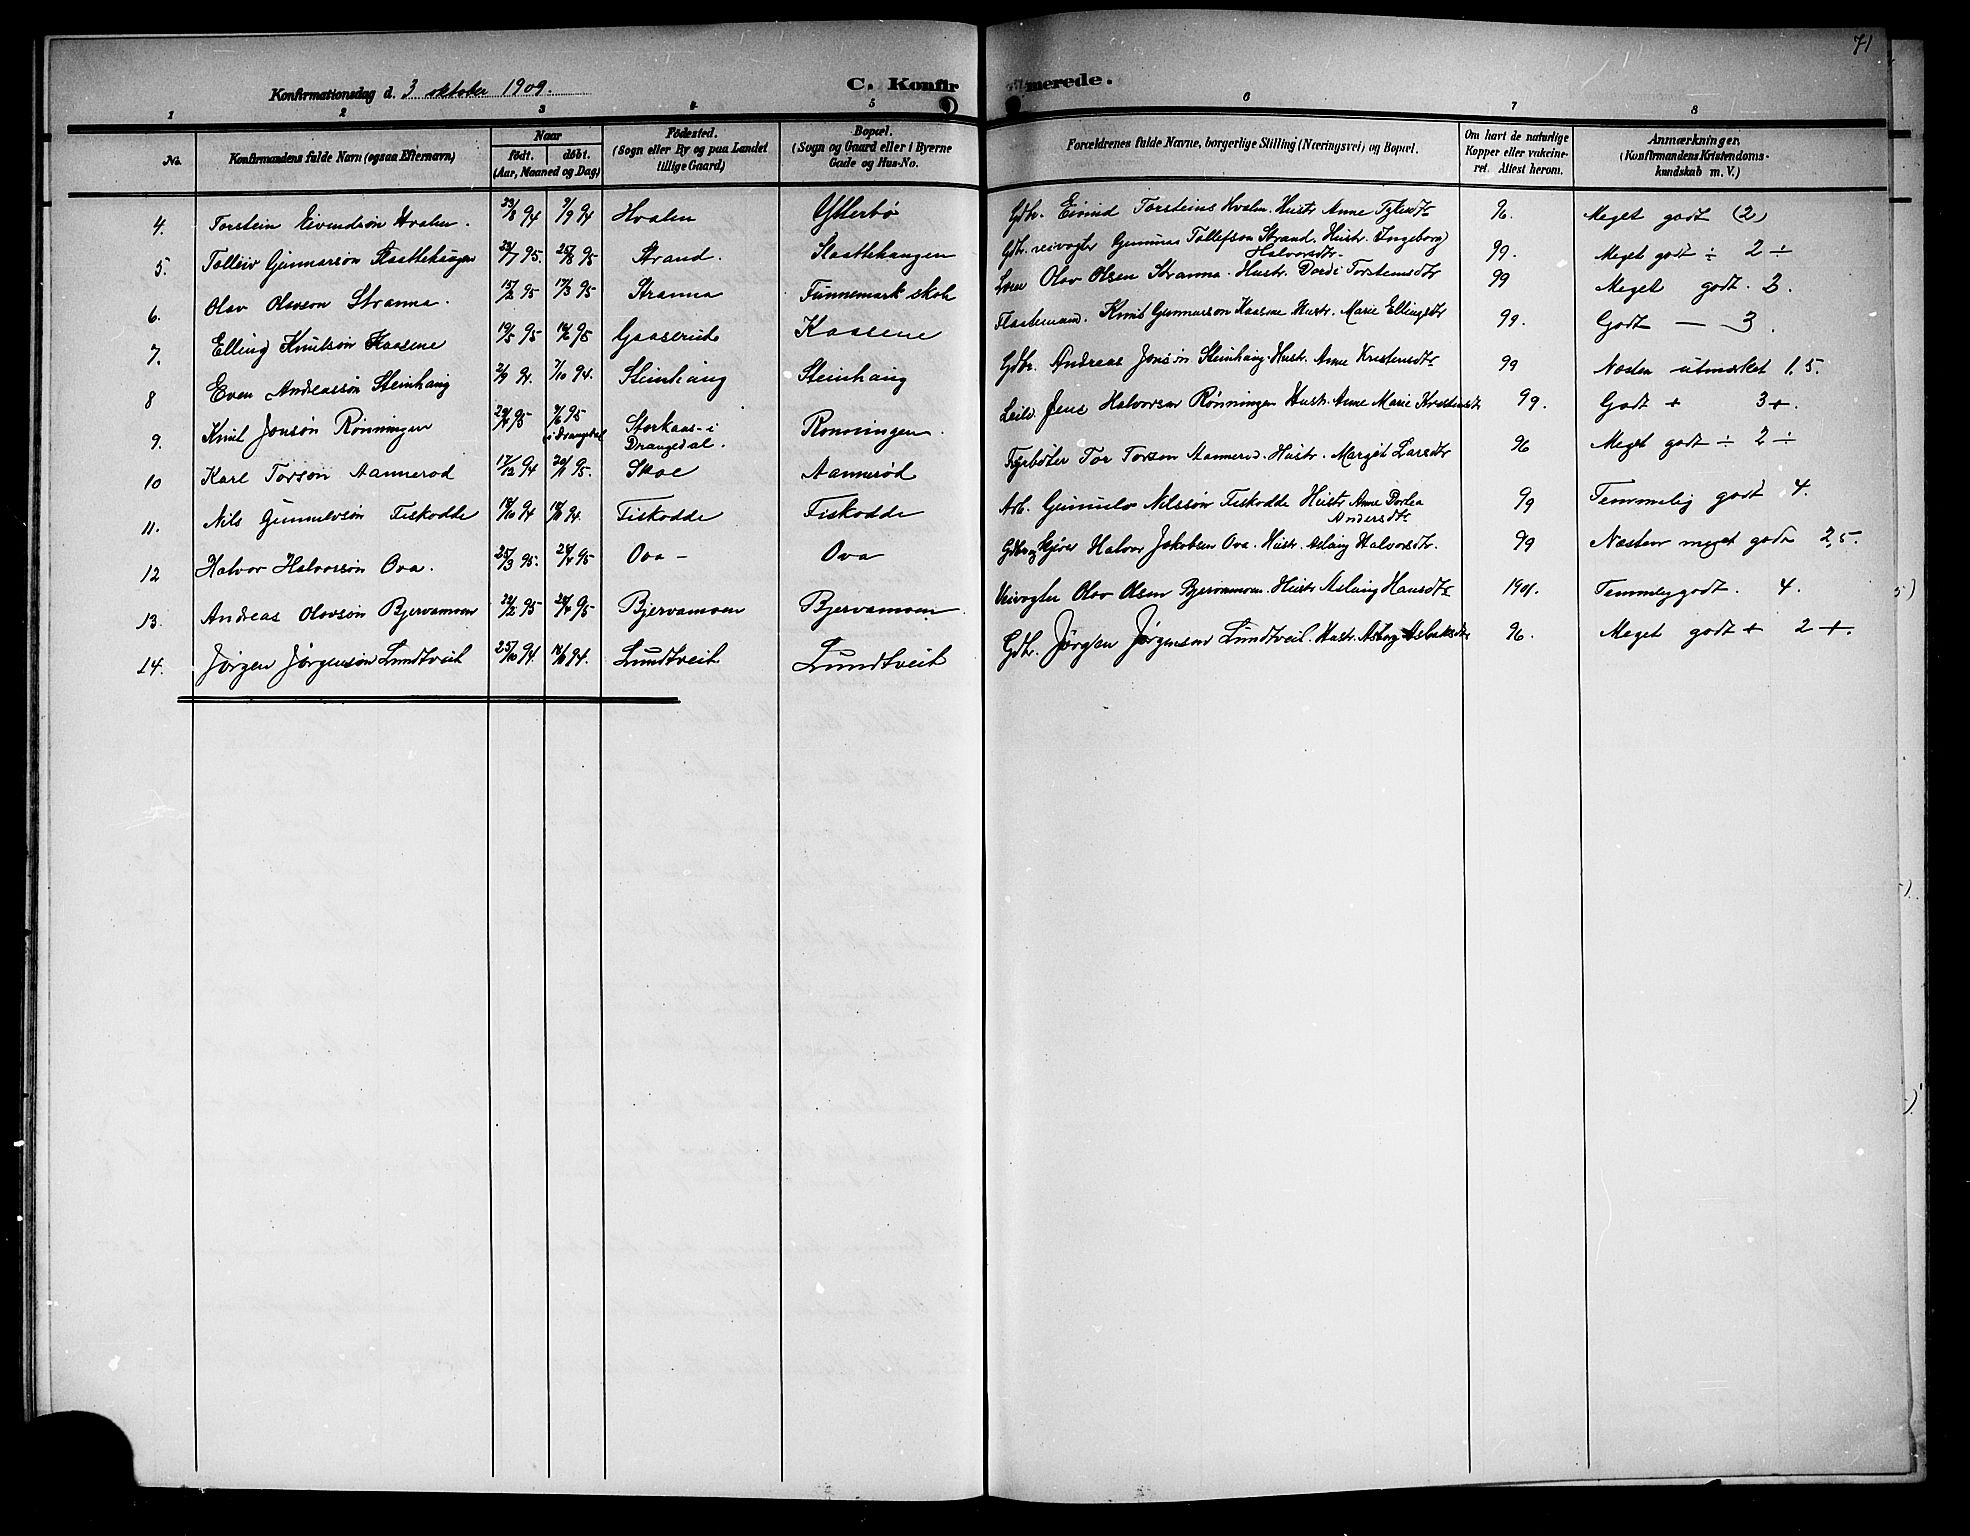 71
Konfirmationsdag d. 3 oktober 1909. C. Konfirmerede.
1 2 3 4 5 6 7 8
No. Konfirmandens fulde Navn (ogsaa Efternavn) Naar født. døbt. (Aar, Maaned og Dag) Fødested. (Sogn eller By og paa Landet tillige Gaard) Bopæl. (Sogn og Gaard eller i Byerne Gade og Hus-No. Forældrenes fulde Navne, borgerlige Stilling (Næringsvei) og Bopæl. Om havt de naturlige Kopper eller vakcineret. Attest herom. Anmærkninger. (Konfirmandens Kristendomskundskab m. V.)
4. Torstein Eivindsøn Hvalen. 23/8 94 9/9 94 Hvalen Ytterbø Gdbr. Eivind Torsteins Hvalen. Hustr. Anne 96. Meget godt (2)
5. Tolleiv Gunnarsøn Slaattehaugen 23/7 95. 25/8 95 Strand. Slaattehaugen Gdbr. veivogter Gunnar Tollefson Strand. Hustr. Ingeborg Halvorsdtr. 99. Meget godt ÷ 2 ÷
6. Olav Olavson Stranna. 15/2 95 17/3 95 Stranna Funnemark skole Olav Olsen Stranna. Hustr. Dordi Torsteinsdtr 99 Meget godt. 2.
7. Elling Knutsøn Kaasene 19/5 95 16/6 95 Gaaserud Kaasene Knut Gunnarson Kaasene Hustr. Marie Ellingsdtr 99. Godt — 3.
8 Even Andreassøn Steinhaug 2/9 94. 7/10 94. Steinhaug Steinhaug Gdbr. Andreas Jonsøn Steinhaug. Hustr. Anne Kristensdtr 99 Næsten utmærket 1,5.
9. Knut Jonsøn Rønningen 29/4 95 9/6 95 i Drangedal Storkaas i Drangedal. Rønningen. Leil. Jens Halvorsen Rønningen Hustr. Anne Marie 99. Godt + 3+.
10 Karl Torsøn Aannerød 17/12 94 20/1 95. Skoe Aannerød Fyrbøter Tor Torsen Aannerød. Hustr. Margit Larsdtr 96 Meget godt ÷ 2 ÷
11. Nils Gunnulvsøn Fiskodde 18/10 94 94. Fiskodde Fiskodde Arb. Gunnulv Nilssøn Fiskodde Hustr Anne Dorthea Andersdtr 99 Temmelig godt 4.
12 Halvor Halvorssøn Ova. 25/3 95. 28/4 95 Ova - Ova Halvor Jakobsen Ova. Hustr. Aslaug Halvorsdtr. 99 Næsten meget godt 2,5.
13. Andreas Olavsøn Bjervamoen 22/2 95 95 Bjervamoen Bjervamoen Veivogter Olav Olsen Bjervamoen. Hustr Aslaug Hansdtr 1901. Temmelig godt. 4.
14. Jørgen Jørgensøn Lundtveit 25/10 94. 94. Lundtveit Lundtveit Gdbr. Jørgen Jørgenson Lundtveit. Hustr. Aslaksdtr 96. Meget godt + 2 +.